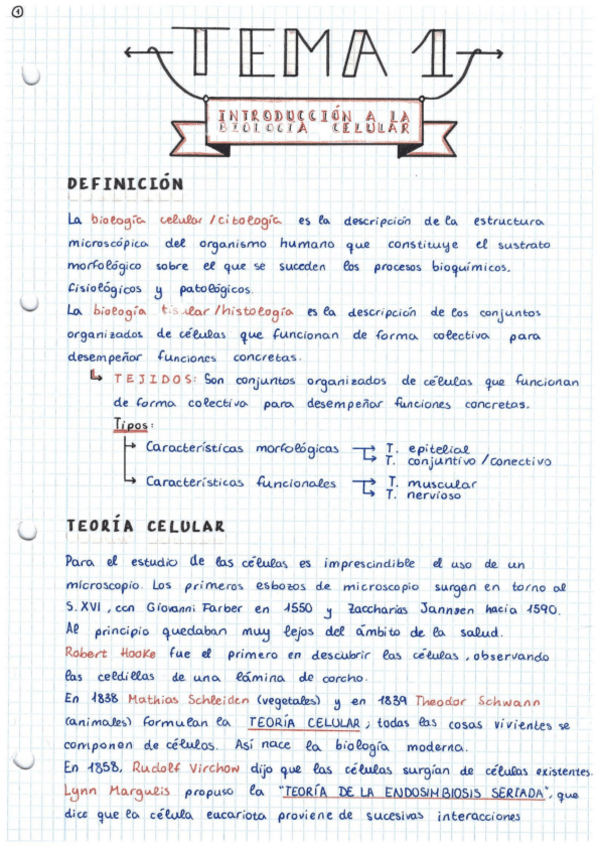 1
TEMA 1
INTRODUCCIÓN A LA
BIOLOGÍA CELULAR
DEFINICIÓN
La biología celular / citología es la descripción de la estructura
microscópica del organismo humano que constituye el sustrato
morfológico sobre el que se suceden los procesos bioquímicos,
fisiológicos y patológicos.
La biología tisular / histología es la descripción de los conjuntos
organizados de células que funcionan de forma colectiva para
desempeñar funciones concretas.
↳ TEJIDOS: Son conjuntos organizados de células que funcionan
de forma colectiva para desempeñar funciones concretas.
Tipos:
Características morfológicas → T. epitelial
→ T. conjuntivo / conectivo
Características funcionales → T. muscular
→ T. nervioso
TEORÍA CELULAR
Para el estudio de las células es imprescindible el uso de un
microscopio. Los primeros esbozos de microscopio surgen en torno al
S. XVI, con Giovanni Farber en 1550 y Zaccharias Jannsen hacia 1590.
Al principio quedaban muy lejos del ámbito de la salud.
Robert Hooke fue el primero en descubrir las células, observando
las celdillas de una lámina de corcho.
En 1838 Mathias Schleiden (vegetales) y en 1839 Theodor Schwann
(animales) formulan la TEORÍA CELULAR; todas las cosas vivientes se
componen de células. Así nace la biología moderna.
En 1858, Rudolf Virchow dijo que las células surgían de células existentes.
Lynn Margulis propuso la "TEORÍA DE LA ENDOSIMBIOSIS SERIADA", que
dice que la célula eucariota proviene de sucesivas interacciones